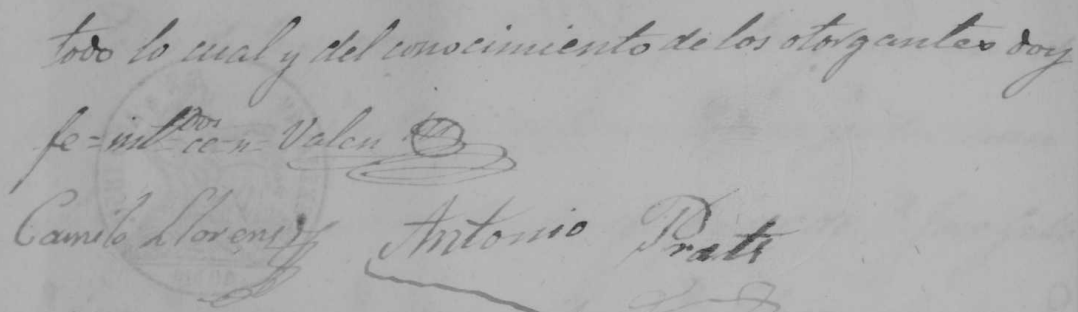 todo lo cual y del conocimiento de los otorgantes doy
fe = int.dos = ce = n = Valen
Camilo Llorens Antonio Prats